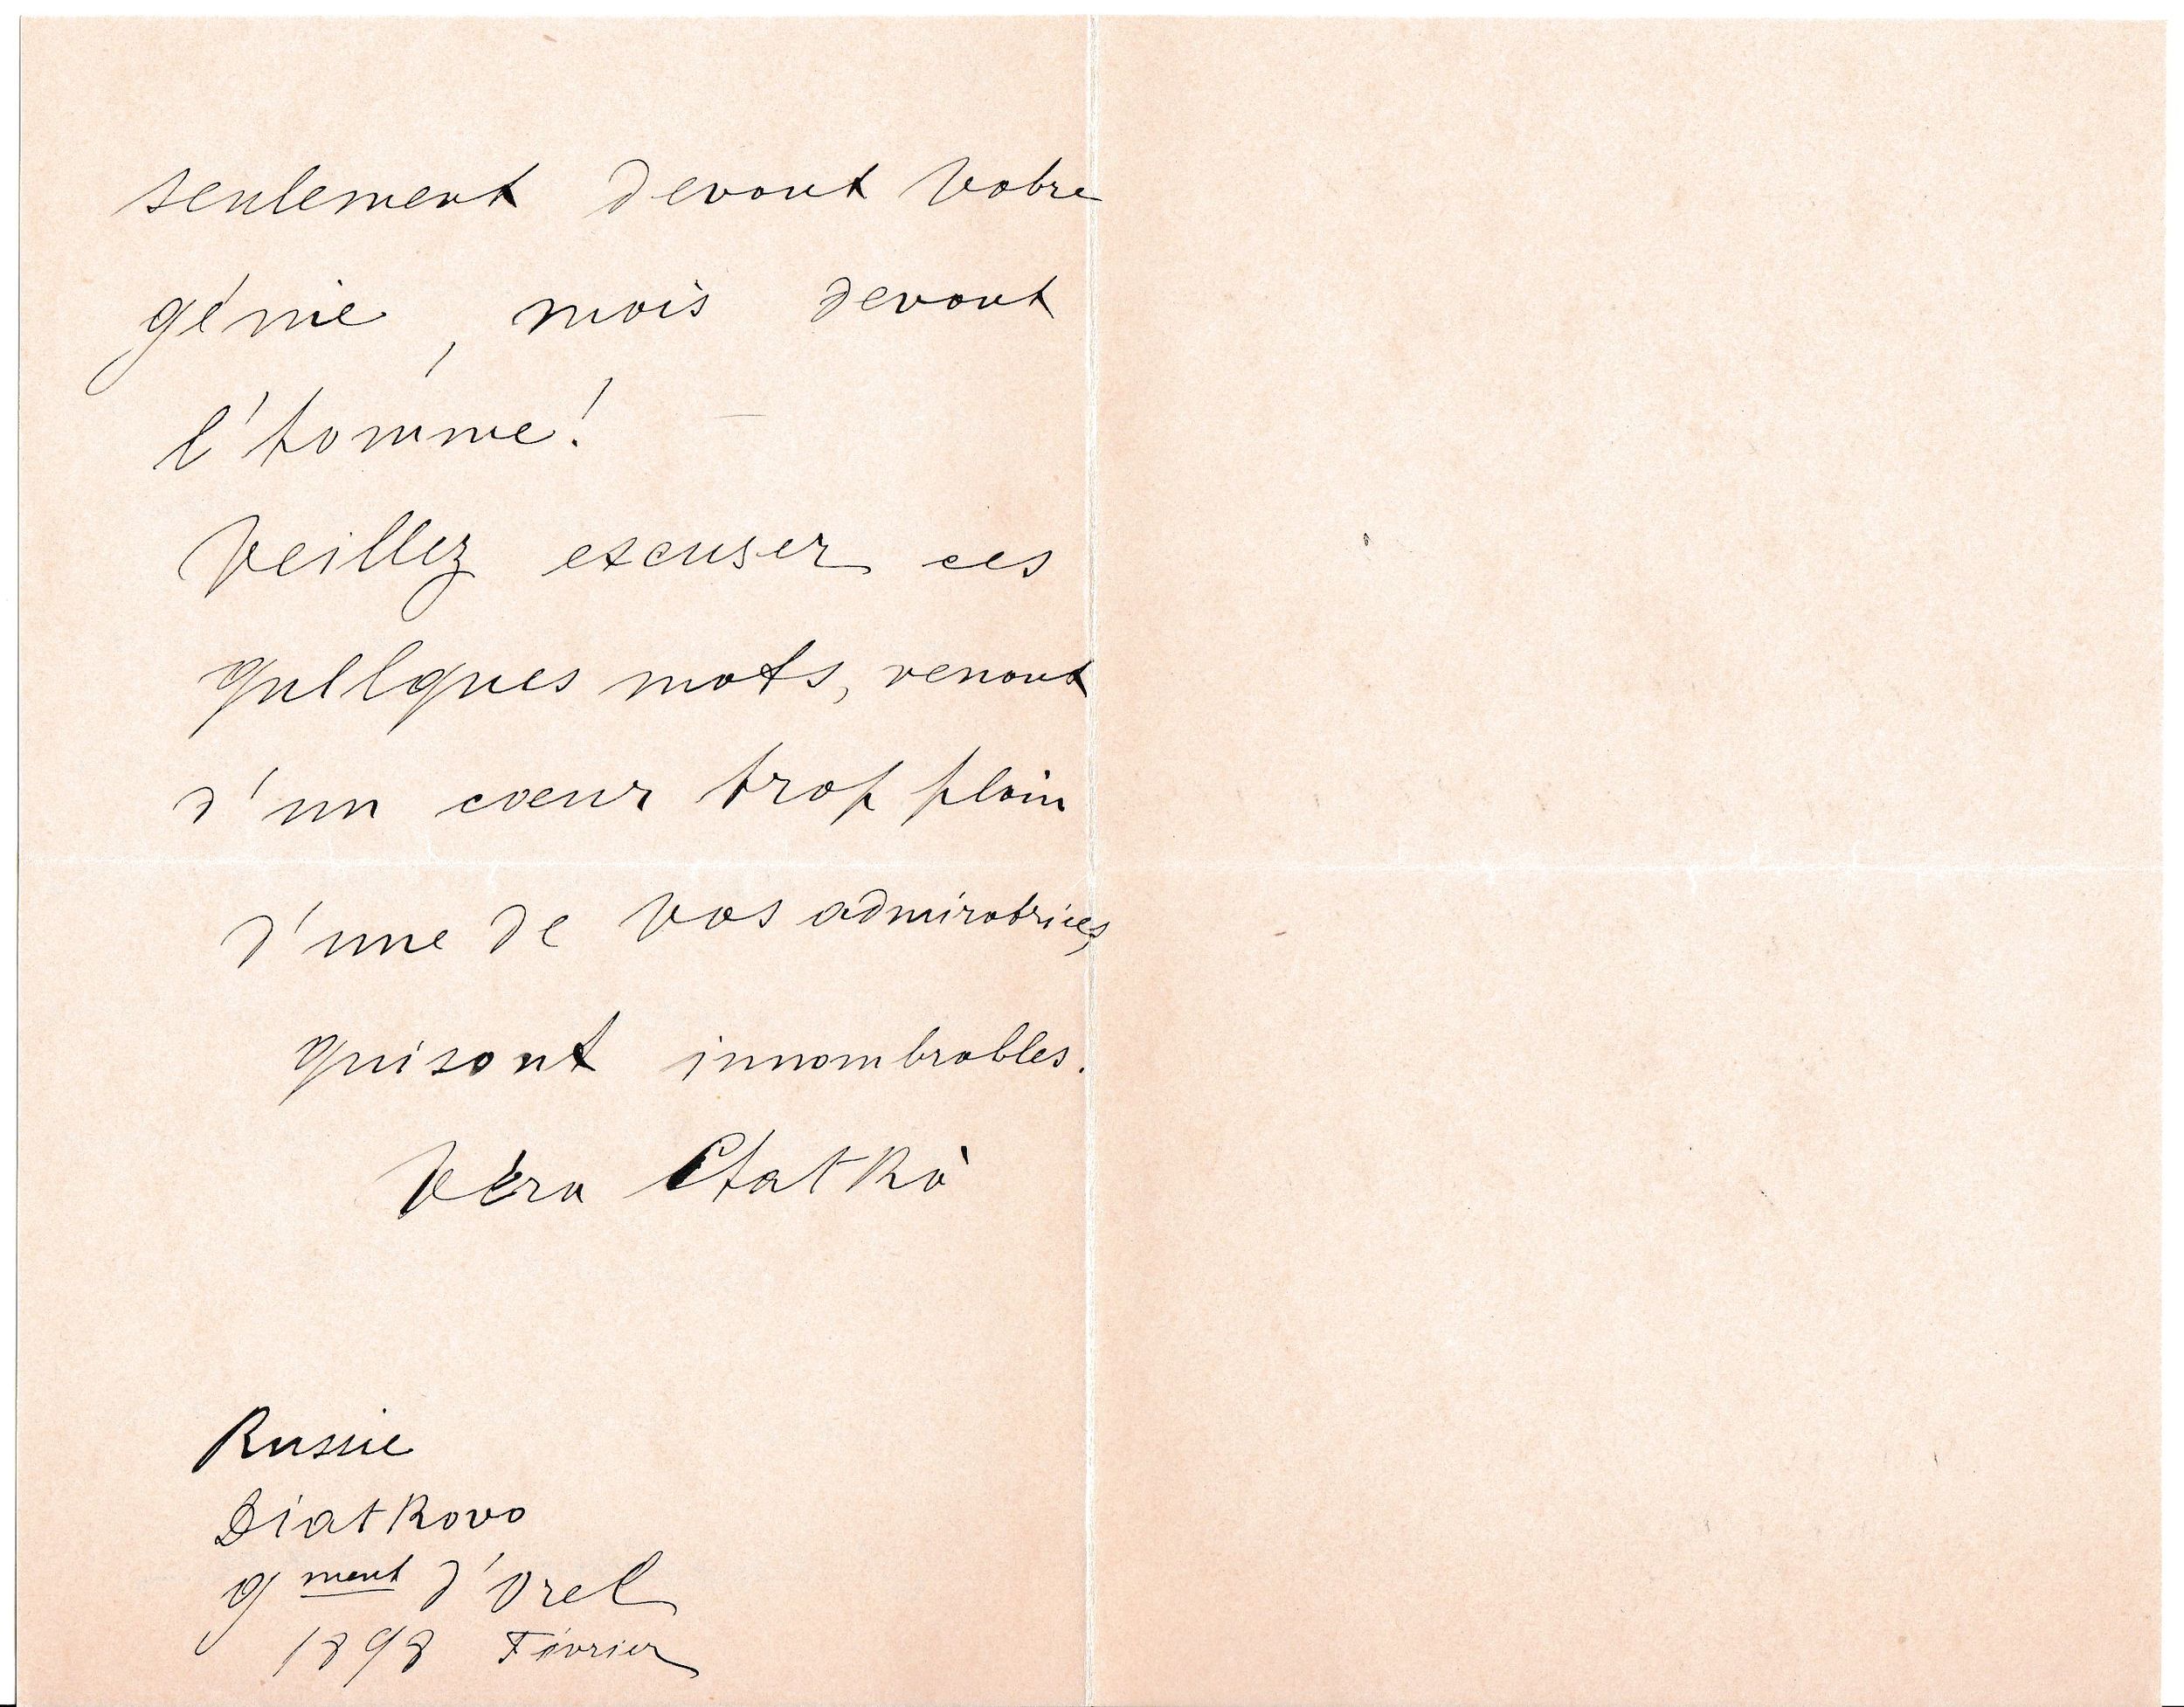 seulement devant Votre
génie, mais devant
l'homme!
Veillez excuser ces
quelques mots, venant
d'un coeur trop plain
d'une de Vos admiratrices,
qui sont innombrables.
Véra
Russie
Diatkovo
g ment d'Orel
1898 Février